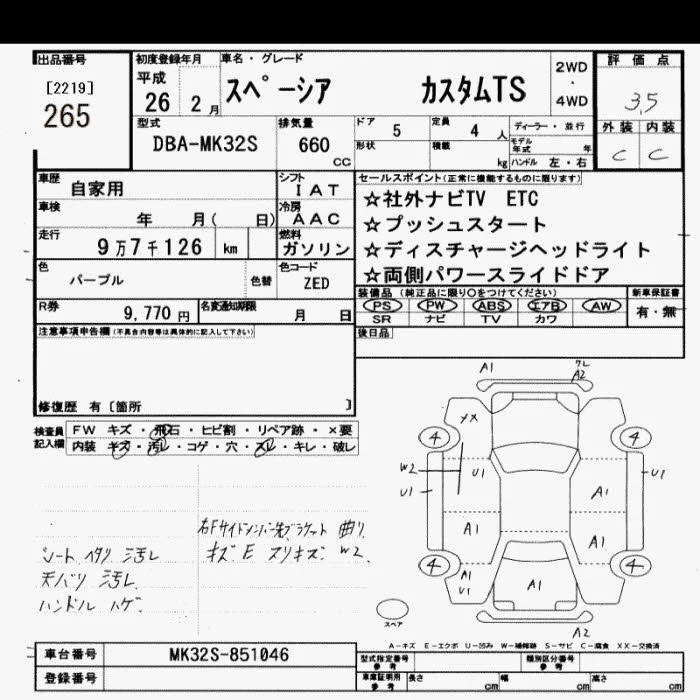 出品番号 初度登録年月 車名・グレード 評価点
[2219] 平成 スペーシア カスタムTS 2WD ・ 4WD 3.5
265 26 2月
外装 内装
C C
型式 排気量 ドア 定員 ディーラー・並行
DBA-MK32S 660 CC 5 4人 モデル年式 年
形状 積載 kg ハンドル 左・右
車歴 自家用 シフト IAT
セールスポイント(正常に機能するものに限ります)
車検 年 月( 日) 冷房 AAC
☆社外ナビTV ETC
☆プッシュスタート
走行 9万7千126 km 燃料 ガソリン
☆ディスチャージヘッドライト
色 パープル 色替 色コード ZED
☆両側パワースライドドア
装備品(純正品に限り○をつけてください) 新車保証書
PS PW ABS エアB AW 有・無
SR ナビ TV カワ
R券 9,770円 名変通知期限 月 日
後日品
注意事項申告欄(不具合内容等は具体的に記入して下さい)
修復歴 有〔箇所 〕
検査員記入欄 FW キズ・飛石・ヒビ割・リペア跡・×要
内装 キズ・汚レ・コゲ・穴・スレ・キレ・破レ
A1 A2
XX
4 4
W2 U1 U1
U1 A1
A1 A1
4 4
A1 U1 A1
スペア A2
右Fサイドメンバー先ブラケット 曲り
シート ヘタリ 汚レ キズ E スリキズ W2
天バリ 汚レ
ハンドル ハゲ
A-キズ E-エクボ U-凹み W-補修跡 S-サビ C-腐食 XX-交換済
車台番号 MK32S-851046 型式指定番号 参考 類別区分番号 参考
登録番号 車庫証明用 参考 長さ cm 幅 cm 高さ cm